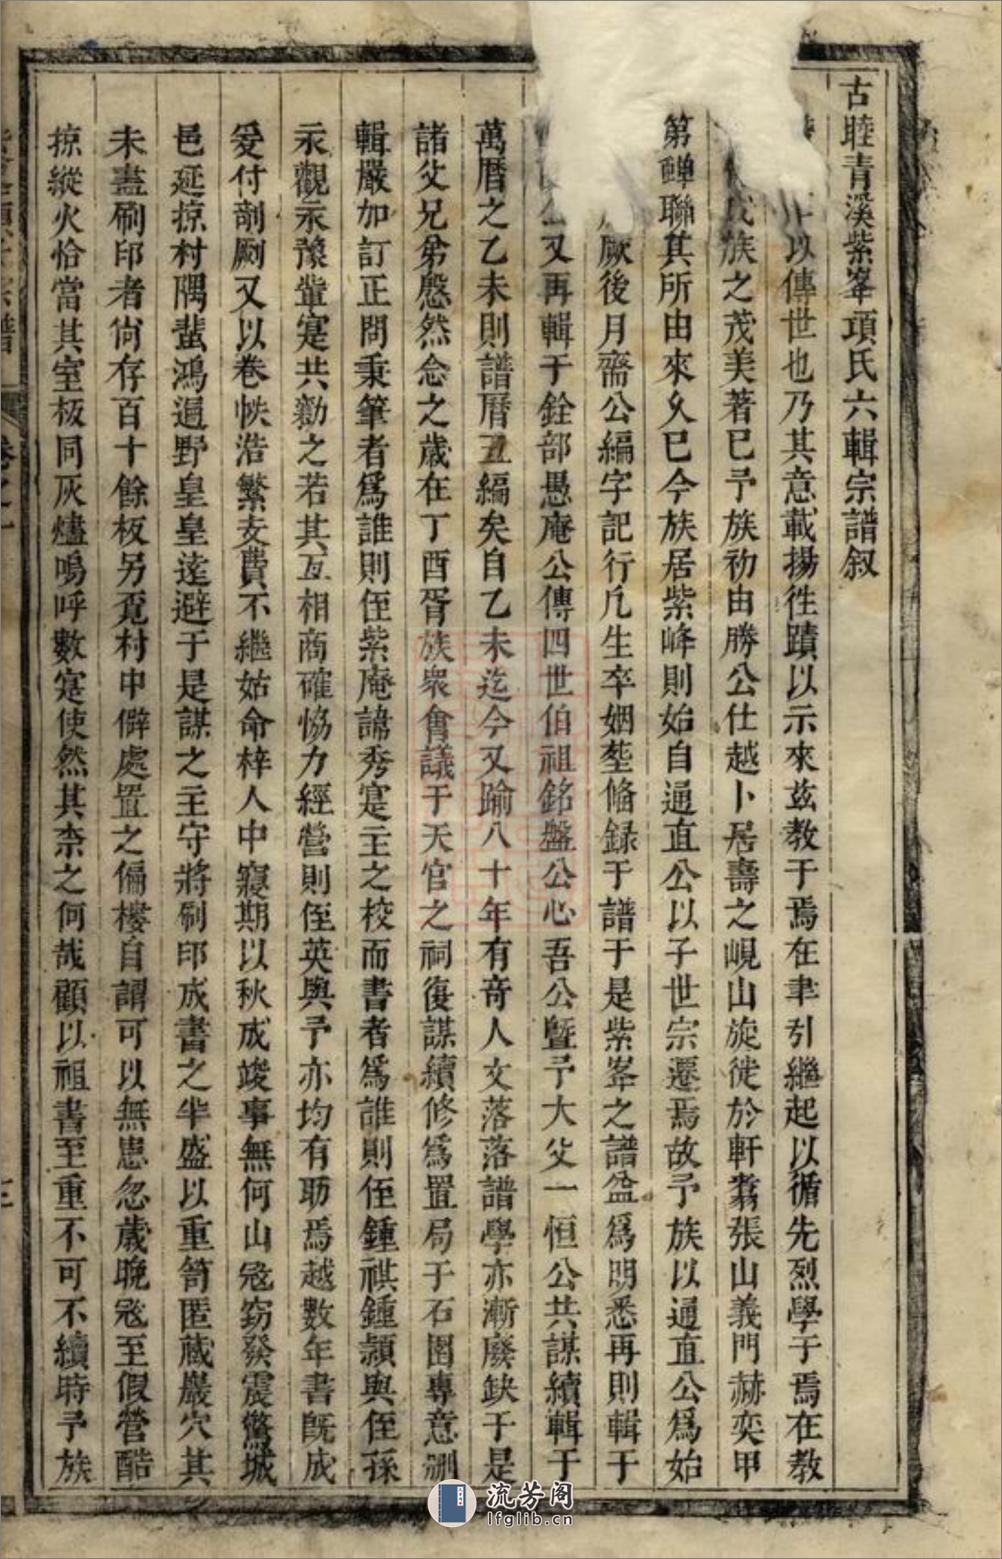 古睦青溪紫峯項氏六輯宗譜叙
以傳世也乃其意載揚徃蹟以示來玆教于焉在聿引繼起以循先烈學于焉在教
氏族之茂美著已予族初由勝公仕越卜居壽之峴山旋徙於軒翥張山義門赫奕甲
第蟬聯其所由來久已今族居紫峰則始自通直公以子世宗遷焉故予族以通直公爲始
厥後月齋公編字記行凡生卒姻塟脩録于譜于是紫峯之譜益爲明悉再則輯于
公又再輯于銓部愚庵公傳四世伯祖銘盤公心吾公曁予大父一恒公共謀續輯于
萬曆之乙未則譜曆五編矣自乙未迄今又踰八十年有奇人文落落譜學亦漸廢缺于是
諸父兄弟慇然念之歲在丁酉胥族衆會議于天官之祠復謀續修爲置局于石圍專意刪
輯嚴加訂正問秉筆者爲誰則侄紫庵諱秀寔主之校而書者爲誰則侄鍾祺鍾頴與侄孫
永觀永豫輩寔共勷之若其互相商確恊力經營則侄英與予亦均有助焉越數年書旣成
爰付剞劂又以卷帙浩繁支費不繼姑命梓人中寢期以秋成竣事無何山㓂竊發震驚城
邑延掠村隅蜚鴻遍野皇皇逹避于是謀之主守將刷印成書之半盛以重笥匿藏嚴穴其
未盡刷印者尙存百十餘板另覔村中僻處置之偏樓自謂可以無患忽歲晚㓂至假營酷
掠縱火恰當其室板同灰燼嗚呼數寔使然其柰之何哉顧以祖書至重不可不續時予族
卷之一
流芳阁
lfglib.cn